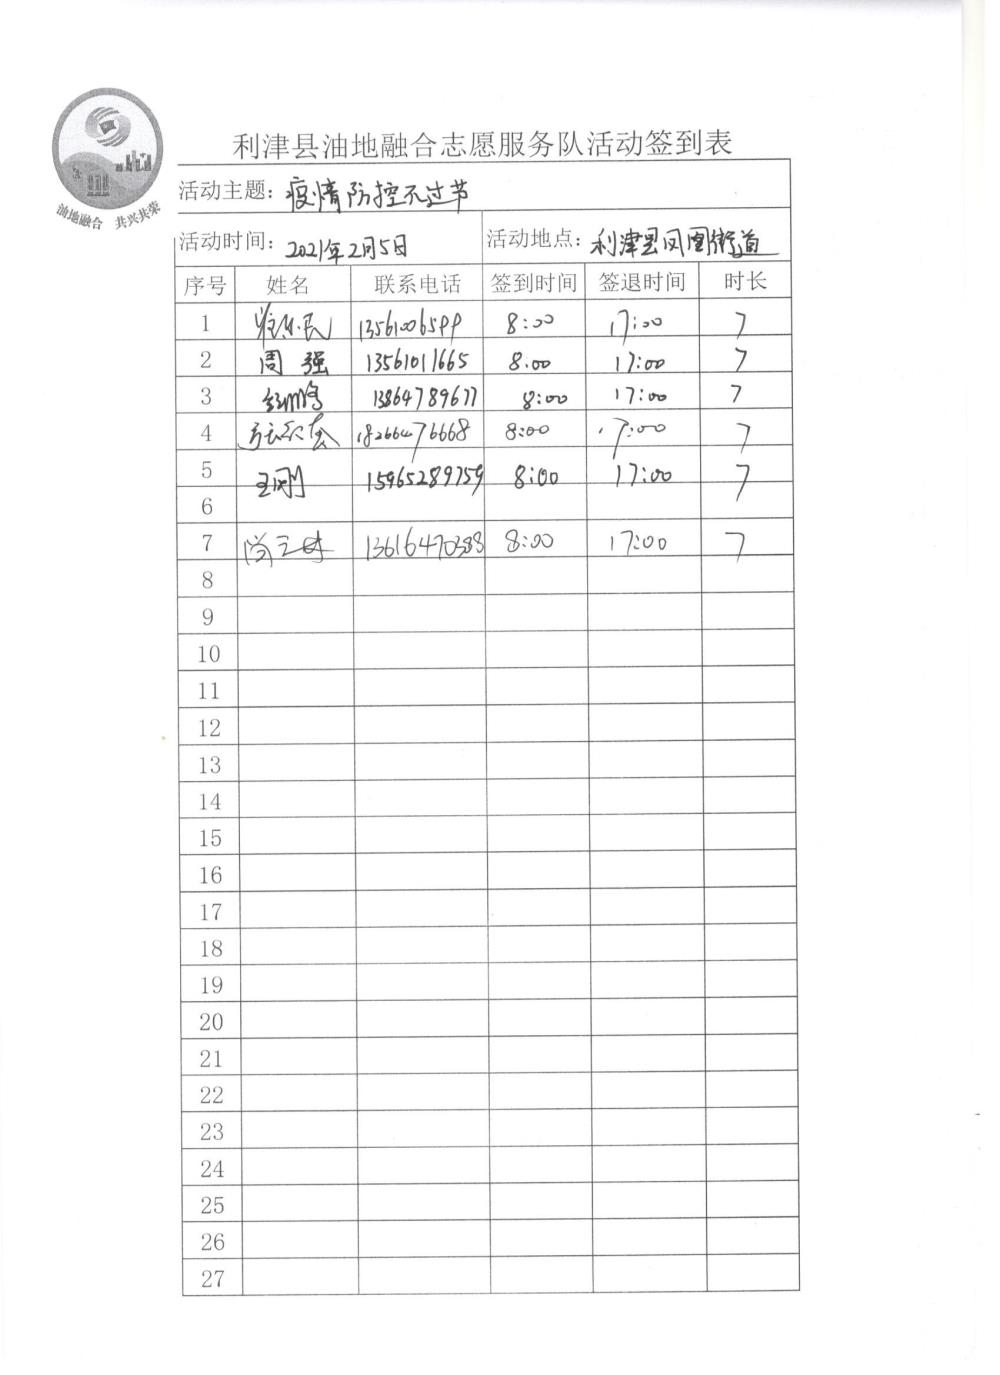 利津县油地融合志愿服务队活动签到表
油地融合 共兴共荣
活动主题：疫情防控不过节
活动时间：2021年2月5日 活动地点：利津县凤凰街道
序号 姓名 联系电话 签到时间 签退时间 时长
1 8:00 17:00 7
2 周强 13561011665 8:00 17:00 7
3 13864789677 8:00 17:00 7
4 18266476668 8:00 17:00 7
5 王刚 15965289759 8:00 17:00 7
6
7 13616470388 8:00 17:00 7
8
9
10
11
12
13
14
15
16
17
18
19
20
21
22
23
24
25
26
27